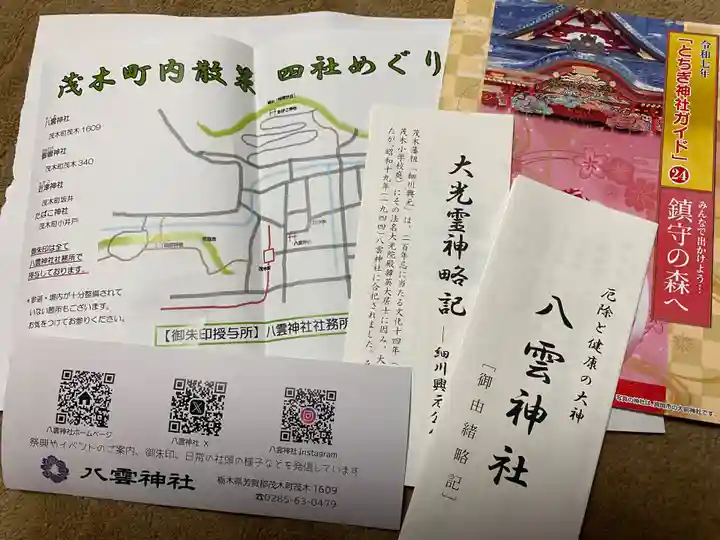 茂木町内散策 四社めぐり
八雲神社
茂木町茂木1609
茂木町茂木 340
茂木町坂井
たばこ神社
茂木町小井戸
御朱印は全て
八雲神社社務所で
授与しております。
*参道・境内が十分整備されて
いない箇所もございます。
お気をつけてお参りください。
【御朱印授与所】八雲神社社務所
八雲神社ホームページ
八雲神社 X
八雲神社 Instagram
祭典やイベントのご案内、御朱印、日常の社頭の様子などを発信しています
八雲神社
栃木県芳賀郡茂木町茂木1609
☎0285-63-0479
大光霊神略記
茂木藩祖「細川興元」は、二百年忌に当たる文化十四年
茂木小学校庭)にその法名大光院殿
たが、昭和十九年(一九四四)八雲神社に合祀されました。
厄除と健康の大神
八雲神社
〔御由緒略記〕
令和七年
「とちぎ神社ガイド」24
みんなで出かけよう…
鎮守の森へ